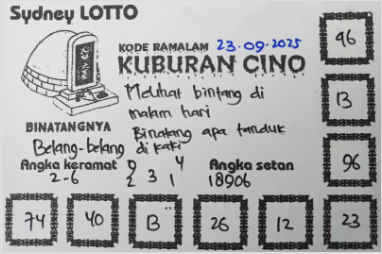 Sydney LOTTO
KODE RAMALAM 23.09.2025
KUBURAN CINO
Melihat bintang di
malam hari
Binatang apa tanduk
di kaki
BINATANGNYA
Belang-belang
Angka keramat
2-6
0 4
2 3 1
Angka setan
18906
96
13
96
74
40
13
26
12
23